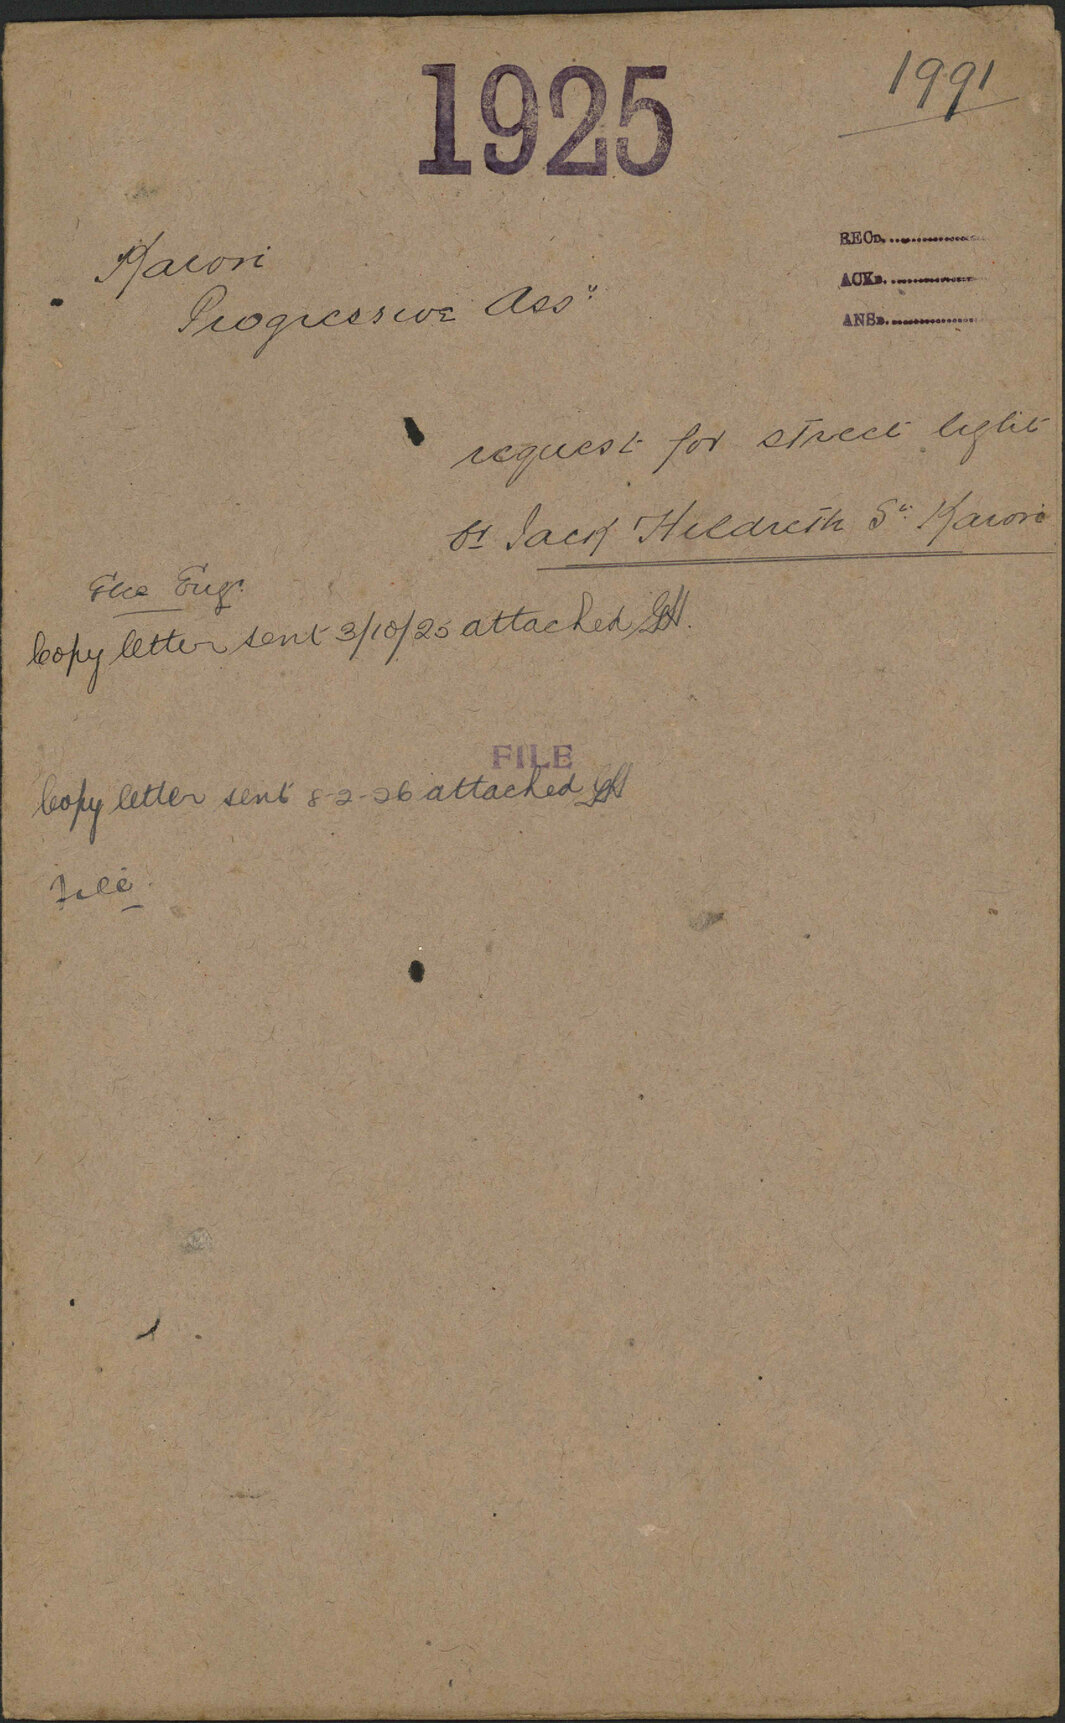 1925
1991
Karori
Progressive Assn
RECD.
ACKD.
ANSD.
request for street light
Jack Hildreth St. Karori
Elec Engr
Copy letter sent 3/10/25 attached GH.
FILE
Copy letter sent 8-2-26 attached GH
File